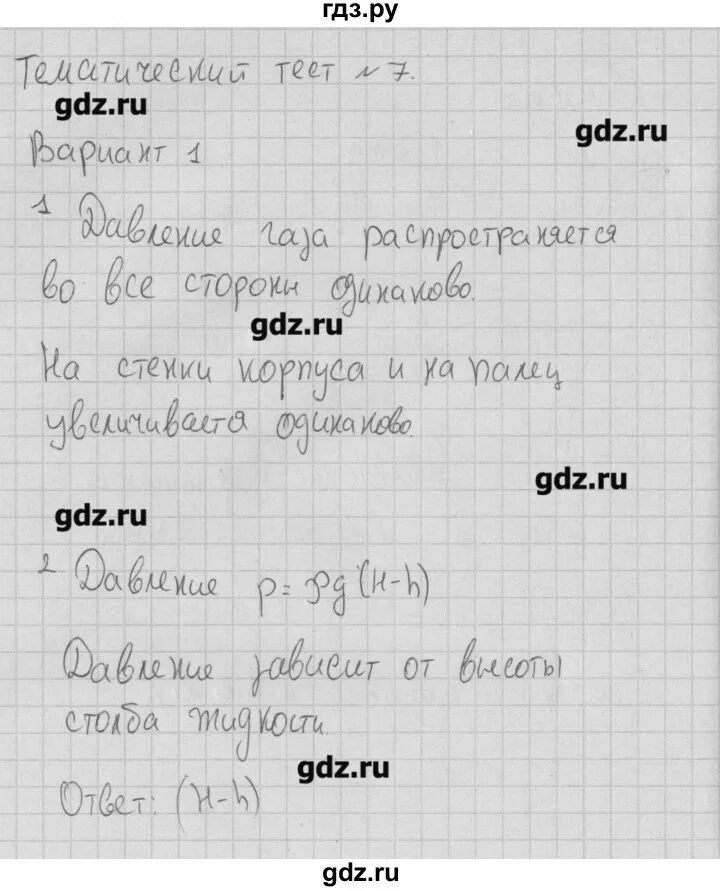 гдз.ру
Тематический тест №7.
gdz.ru
gdz.ru
Вариант 1
1 Давление газа распространяется
во все стороны одинаково.
gdz.ru
На стенки корпуса и на палец
увеличивается одинаково.
gdz.ru
gdz.ru
2 Давление p = ρg(H-h)
Давление зависит от высоты
столба жидкости.
gdz.ru
Ответ: (H-h)
gdz.ru